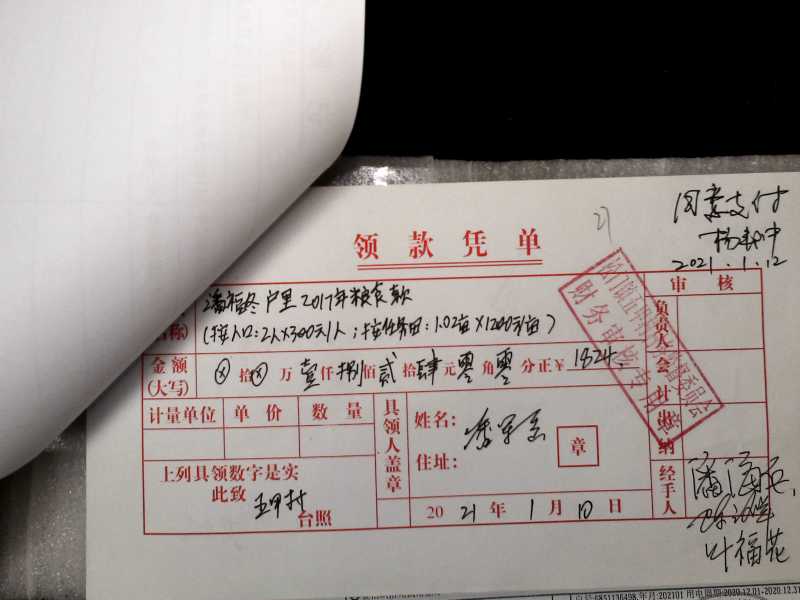 同意支付
2021.1.12
领款凭单
审核
潘福终户里2017年粮食款
称)
(按人口:2人×300元/人;按任务田:1.02亩×1200元/亩)
负责人
金额
(大写)
ⓧ拾ⓧ万壹仟捌佰贰拾肆元零角零分正¥1824
会计
计量单位 单价 数量
具领人盖章
姓名:
住址:
章
出纳
上列具领数字是实
此致
五甲村
台照
2021年1月10日
经手人
叶福花
财务审核专用章
6851136498,年月:202101 用电周期:2020.12.01-2020.12.31